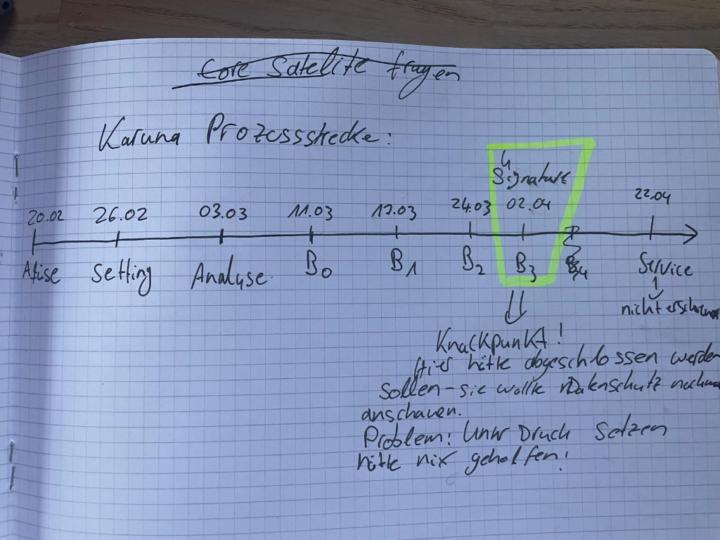 Core Satelite fragen
Karuna Prozessstrecke:
4
Signature
20.02 26.02 03.03 11.03 17.03 24.03 02.04 22.04
Setting Analyse B0 B1 B2 B3 B4 Service
nicht
Knackpunkt!
Hier hätte abgeschlossen werden
sollen - sie wollte Datenschutz nochmal
anschauen.
Problem: Unter Druck setzen
hätte nix geholfen!